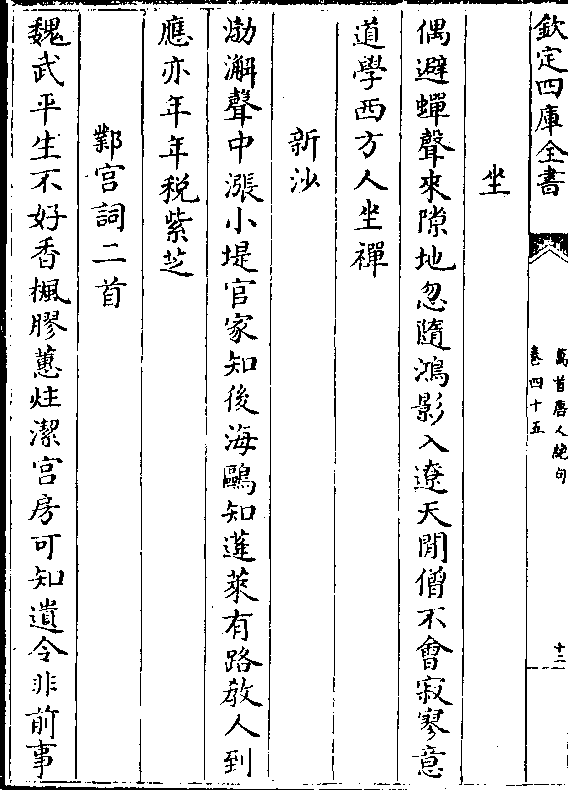 欽定四庫全書
萬首唐人絶句
卷四十五
十二
坐
偶避蟬聲來隙地忽隨鴻影入遼天閒僧不會寂寥意
道學西方人坐禪
新沙
渤澥聲中漲小堤官家知後海鷗知蓬萊有路敎人到
應亦年年稅紫芝
鄴宮詞二首
魏武平生不好香楓膠蕙炷潔宮房可知遺令非前事